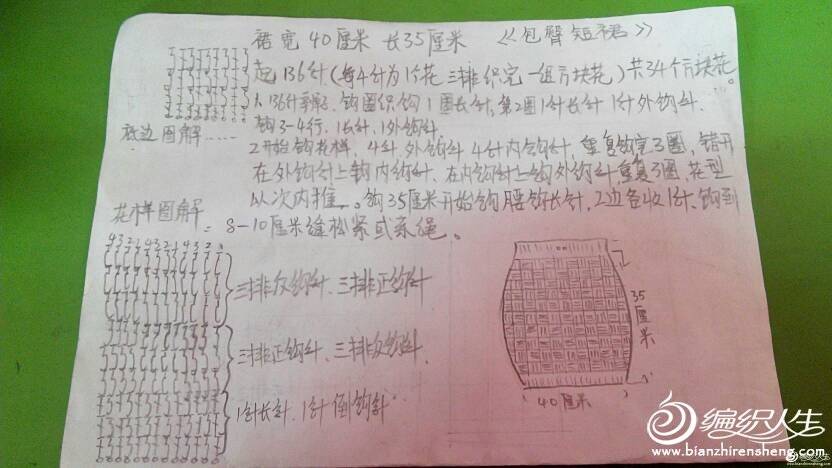 裙宽40厘米 长35厘米 《包臀短裙》
起136针(每4针为1个花 三排织完一组方块花)共34个方块花。
1、136针辫子,钩圈织钩1圈长针,第2圈1针长针1针外钩针.
钩3-4行,1长针,1外钩针.
底边图解……
2开始钩花样,4针外钩针4针内钩针,重复钩完3圈,错开
在外钩针上钩内钩针,在内钩针上钩外钩针,重复3圈花型
以次内推.。钩35厘米开始钩腰钩长针,2边各收1针,钩到
花样图解
8-10厘米缝松紧或系绳。
432143214321
三排反钩针、三排正钩针
三排正钩针、三排反钩针.
1针长针,1针倒钩针
35厘米
40厘米
编织人生
www.bianzhirensheng.com